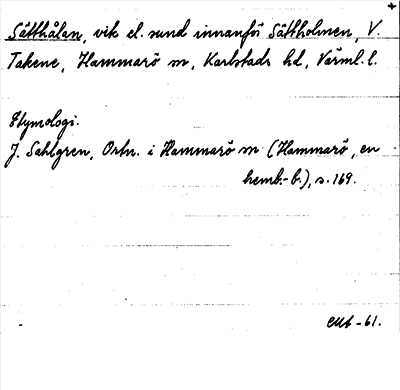 Sätthålan, vik el. sund innanför Sättholmen, V.
Takene, Hammarö sn, Karlstads hd, Värml. l.
Etymologi.
J. Sahlgren, Ortn. i Hammarö sn (Hammarö, en
hemb.-b.), s. 169.
-61.